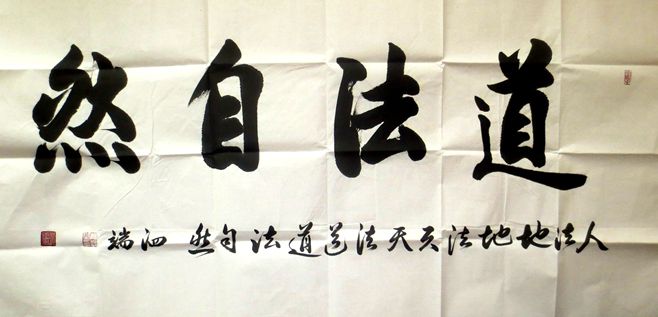 道法自然
人法地地法天天法道道法自然 泗端